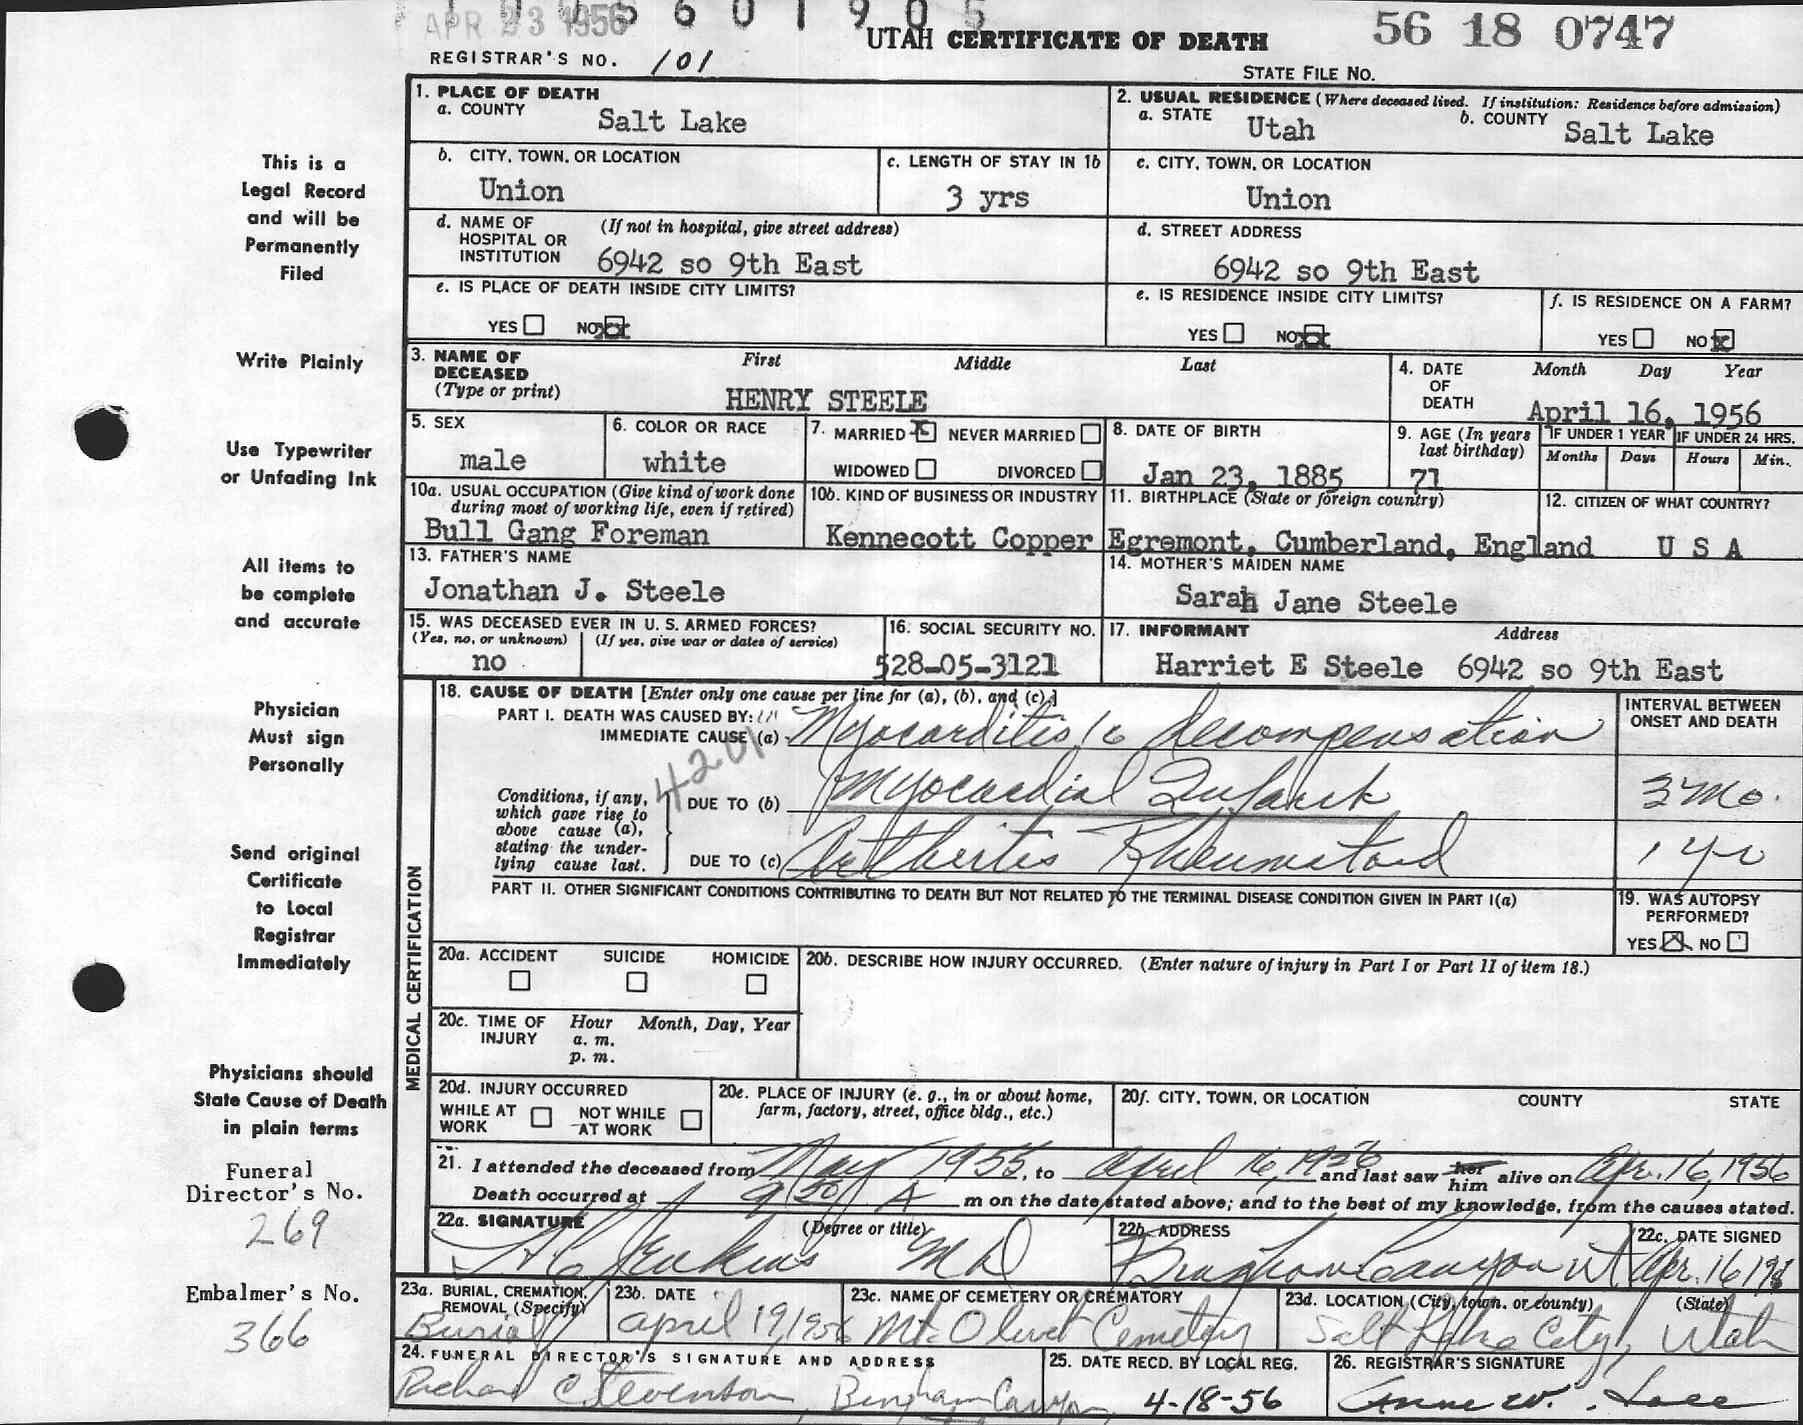 APR 23 1956
56 18 0747
UTAH CERTIFICATE OF DEATH
REGISTRAR'S NO. 101
STATE FILE NO.
1. PLACE OF DEATH
a. COUNTY Salt Lake
2. USUAL RESIDENCE (Where deceased lived. If institution: Residence before admission)
a. STATE Utah b. COUNTY Salt Lake
b. CITY, TOWN, OR LOCATION Union
c. LENGTH OF STAY IN 1b 3 yrs
c. CITY, TOWN, OR LOCATION Union
d. NAME OF HOSPITAL OR INSTITUTION (If not in hospital, give street address)
6942 so 9th East
d. STREET ADDRESS
6942 so 9th East
e. IS PLACE OF DEATH INSIDE CITY LIMITS?
YES NO
e. IS RESIDENCE INSIDE CITY LIMITS?
YES NO
f. IS RESIDENCE ON A FARM?
YES NO
3. NAME OF DECEASED (Type or print) First Middle Last
HENRY STEELE
4. DATE OF DEATH Month Day Year
April 16, 1956
5. SEX male
6. COLOR OR RACE white
7. MARRIED NEVER MARRIED
WIDOWED DIVORCED
8. DATE OF BIRTH Jan 23, 1885
9. AGE (In years last birthday) 71
IF UNDER 1 YEAR Months Days
IF UNDER 24 HRS. Hours Min.
10a. USUAL OCCUPATION (Give kind of work done during most of working life, even if retired)
Bull Gang Foreman
10b. KIND OF BUSINESS OR INDUSTRY
Kennecott Copper
11. BIRTHPLACE (State or foreign country)
Egremont, Cumberland, England
12. CITIZEN OF WHAT COUNTRY?
U S A
13. FATHER'S NAME
Jonathan J. Steele
14. MOTHER'S MAIDEN NAME
Sarah Jane Steele
15. WAS DECEASED EVER IN U. S. ARMED FORCES?
(Yes, no, or unknown) (If yes, give war or dates of service)
no
16. SOCIAL SECURITY NO.
528-05-3121
17. INFORMANT Address
Harriet E Steele 6942 so 9th East
18. CAUSE OF DEATH [Enter only one cause per line for (a), (b), and (c).]
PART I. DEATH WAS CAUSED BY:
IMMEDIATE CAUSE (a) Myocarditis decompensation
INTERVAL BETWEEN ONSET AND DEATH
4201
Conditions, if any, which gave rise to above cause (a), stating the underlying cause last.
DUE TO (b) Myocardial Infarct 3 Mo.
DUE TO (c) Arthritis Rheumatoid 1 yr
PART II. OTHER SIGNIFICANT CONDITIONS CONTRIBUTING TO DEATH BUT NOT RELATED TO THE TERMINAL DISEASE CONDITION GIVEN IN PART I(a)
19. WAS AUTOPSY PERFORMED?
YES NO
MEDICAL CERTIFICATION
20a. ACCIDENT SUICIDE HOMICIDE
20b. DESCRIBE HOW INJURY OCCURRED. (Enter nature of injury in Part I or Part II of item 18.)
20c. TIME OF INJURY Hour Month, Day, Year
a. m.
p. m.
20d. INJURY OCCURRED
WHILE AT WORK NOT WHILE AT WORK
20e. PLACE OF INJURY (e. g., in or about home, farm, factory, street, office bldg., etc.)
20f. CITY, TOWN, OR LOCATION COUNTY STATE
21. I attended the deceased from May 1955, to April 16, 1956 and last saw her him alive on Apr. 16, 1956
Death occurred at 9 30 A m on the date stated above; and to the best of my knowledge, from the causes stated.
22a. SIGNATURE (Degree or title)
Jenkins M D
22b. ADDRESS
Bingham Canyon Ut
22c. DATE SIGNED
Apr. 16
23a. BURIAL, CREMATION, REMOVAL (Specify)
Burial
23b. DATE
April 19, 1956
23c. NAME OF CEMETERY OR CREMATORY
Mt. Olivet Cemetery
23d. LOCATION (City, town, or county) (State)
Salt Lake City, Utah
24. FUNERAL DIRECTOR'S SIGNATURE AND ADDRESS
Richard C Stevenson, Bingham Canyon,
25. DATE RECD. BY LOCAL REG.
4-18-56
26. REGISTRAR'S SIGNATURE
Anne W.
This is a
Legal Record
and will be
Permanently
Filed
Write Plainly
Use Typewriter
or Unfading Ink
All items to
be complete
and accurate
Physician
Must sign
Personally
Send original
Certificate
to Local
Registrar
Immediately
Physicians should
State Cause of Death
in plain terms
Funeral
Director's No.
269
Embalmer's No.
366